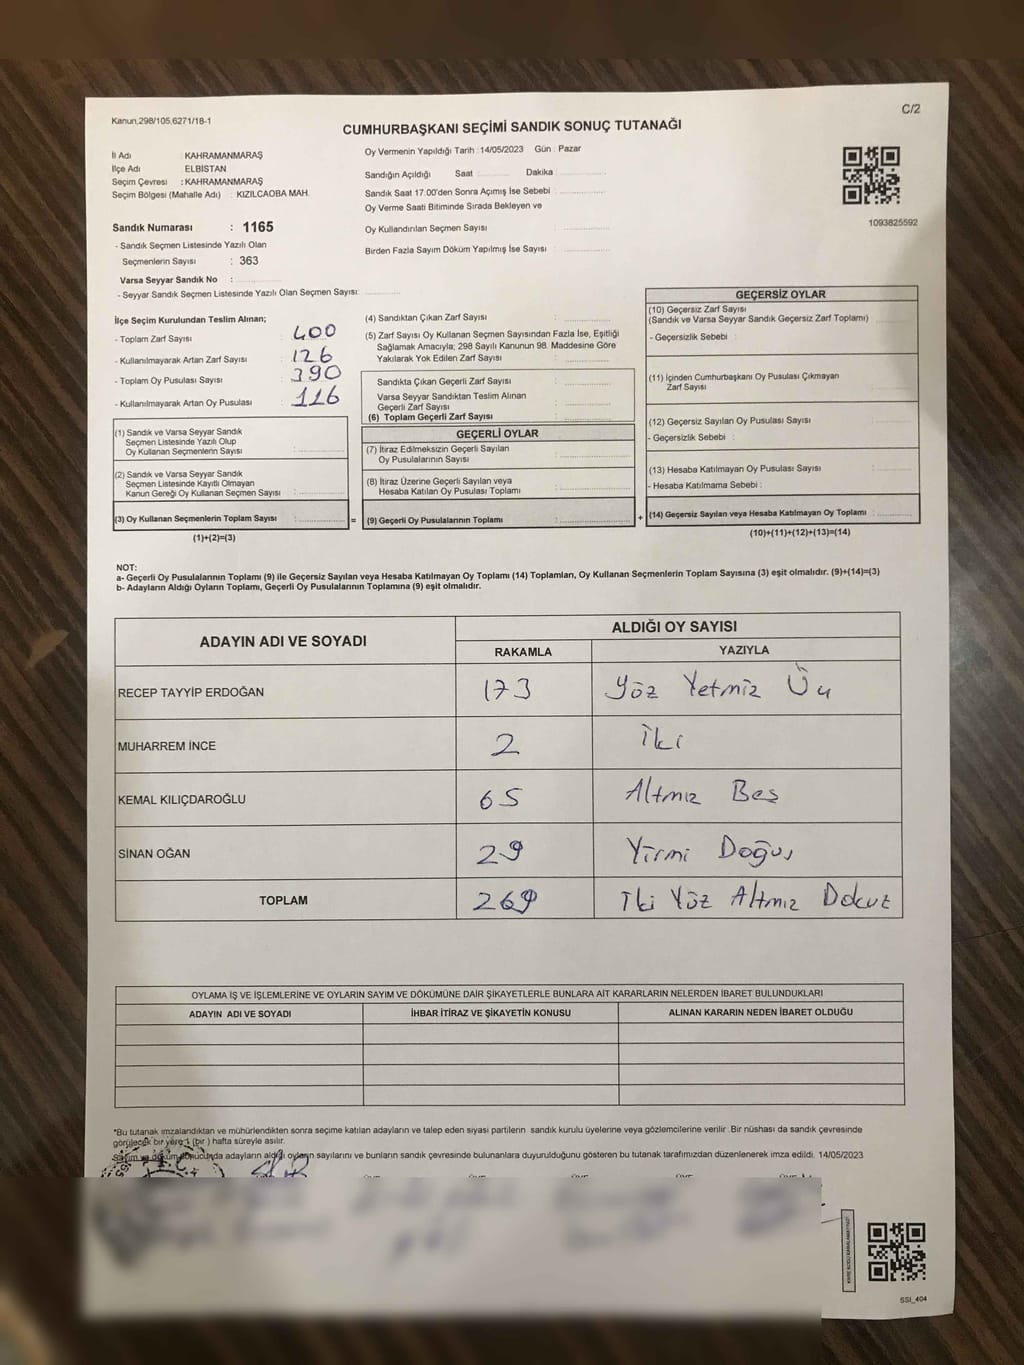 Kanun,298/105,6271/18-1
C/2
CUMHURBAŞKANI SEÇİMİ SANDIK SONUÇ TUTANAĞI
İl Adı : KAHRAMANMARAŞ
İlçe Adı : ELBİSTAN
Seçim Çevresi : KAHRAMANMARAŞ
Seçim Bölgesi (Mahalle Adı) : KIZILCAOBA MAH.
Sandık Numarası : 1165
- Sandık Seçmen Listesinde Yazılı Olan
Seçmenlerin Sayısı : 363
Varsa Seyyar Sandık No :
- Seyyar Sandık Seçmen Listesinde Yazılı Olan Seçmen Sayısı:
Oy Vermenin Yapıldığı Tarih : 14/05/2023 Gün : Pazar
Sandığın Açıldığı Saat Dakika
Sandık Saat 17.00'den Sonra Açımış İse Sebebi
Oy Verme Saati Bitiminde Sırada Bekleyen ve
Oy Kullandırılan Seçmen Sayısı :
Birden Fazla Sayım Döküm Yapılmış İse Sayısı :
1093825592
İlçe Seçim Kurulundan Teslim Alınan;
- Toplam Zarf Sayısı : 400
- Kullanılmayarak Artan Zarf Sayısı : 126
- Toplam Oy Pusulası Sayısı : 390
- Kullanılmayarak Artan Oy Pusulası : 116
(1) Sandık ve Varsa Seyyar Sandık
Seçmen Listesinde Yazılı Olup
Oy Kullanan Seçmenlerin Sayısı :
(2) Sandık ve Varsa Seyyar Sandık
Seçmen Listesinde Kayıtlı Olmayan
Kanun Gereği Oy Kullanan Seçmen Sayısı :
(3) Oy Kullanan Seçmenlerin Toplam Sayısı :
(1)+(2)=(3)
(4) Sandıktan Çıkan Zarf Sayısı :
(5) Zarf Sayısı Oy Kullanan Seçmen Sayısından Fazla İse, Eşitliği
Sağlamak Amacıyla; 298 Sayılı Kanunun 98. Maddesine Göre
Yakılarak Yok Edilen Zarf Sayısı :
Sandıkta Çıkan Geçerli Zarf Sayısı :
Varsa Seyyar Sandıktan Teslim Alınan
Geçerli Zarf Sayısı :
(6) Toplam Geçerli Zarf Sayısı :
GEÇERLİ OYLAR
(7) İtiraz Edilmeksizin Geçerli Sayılan
Oy Pusulalarının Sayısı :
(8) İtiraz Üzerine Geçerli Sayılan veya
Hesaba Katılan Oy Pusulası Toplamı :
= (9) Geçerli Oy Pusulalarının Toplamı :
GEÇERSİZ OYLAR
(10) Geçersiz Zarf Sayısı
(Sandık ve Varsa Seyyar Sandık Geçersiz Zarf Toplamı)
- Geçersizlik Sebebi :
(11) İçinden Cumhurbaşkanı Oy Pusulası Çıkmayan
Zarf Sayısı
(12) Geçersiz Sayılan Oy Pusulası Sayısı :
- Geçersizlik Sebebi :
(13) Hesaba Katılmayan Oy Pusulası Sayısı :
- Hesaba Katılmama Sebebi :
+ (14) Geçersiz Sayılan veya Hesaba Katılmayan Oy Toplamı :
(10)+(11)+(12)+(13)=(14)
NOT:
a- Geçerli Oy Pusulalarının Toplamı (9) ile Geçersiz Sayılan veya Hesaba Katılmayan Oy Toplamı (14) Toplamları, Oy Kullanan Seçmenlerin Toplam Sayısına (3) eşit olmalıdır. (9)+(14)=(3)
b- Adayların Aldığı Oyların Toplamı, Geçerli Oy Pusulalarının Toplamına (9) eşit olmalıdır.
ADAYIN ADI VE SOYADI ALDIĞI OY SAYISI
RAKAMLA YAZIYLA
RECEP TAYYİP ERDOĞAN 173 Yöz Yetmiz Üu
MUHARREM İNCE 2 İki
KEMAL KILIÇDAROĞLU 65 Altmız Beş
SİNAN OĞAN 29 Yirmi Doğuz
TOPLAM 269 İki Yöz Altmız Dokuz
OYLAMA İŞ VE İŞLEMLERİNE VE OYLARIN SAYIM VE DÖKÜMÜNE DAİR ŞİKAYETLERLE BUNLARA AİT KARARLARIN NELERDEN İBARET BULUNDUKLARI
ADAYIN ADI VE SOYADI İHBAR İTİRAZ VE ŞİKAYETİN KONUSU ALINAN KARARIN NEDEN İBARET OLDUĞU
*Bu tutanak imzalandıktan ve mühürlendikten sonra seçime katılan adayların ve talep eden siyasi partilerin sandık kurulu üyelerine veya gözlemcilerine verilir .Bir nüshası da sandık çevresinde
görülecek bir yere 1 (bir ) hafta süreyle asılır.
Sayım ve döküm sonucunda adayların aldığı oyların sayılarını ve bunların sandık çevresinde bulunanlara duyurulduğunu gösteren bu tutanak tarafımızdan düzenlenerek imza edildi. 14/05/2023
SSI_404